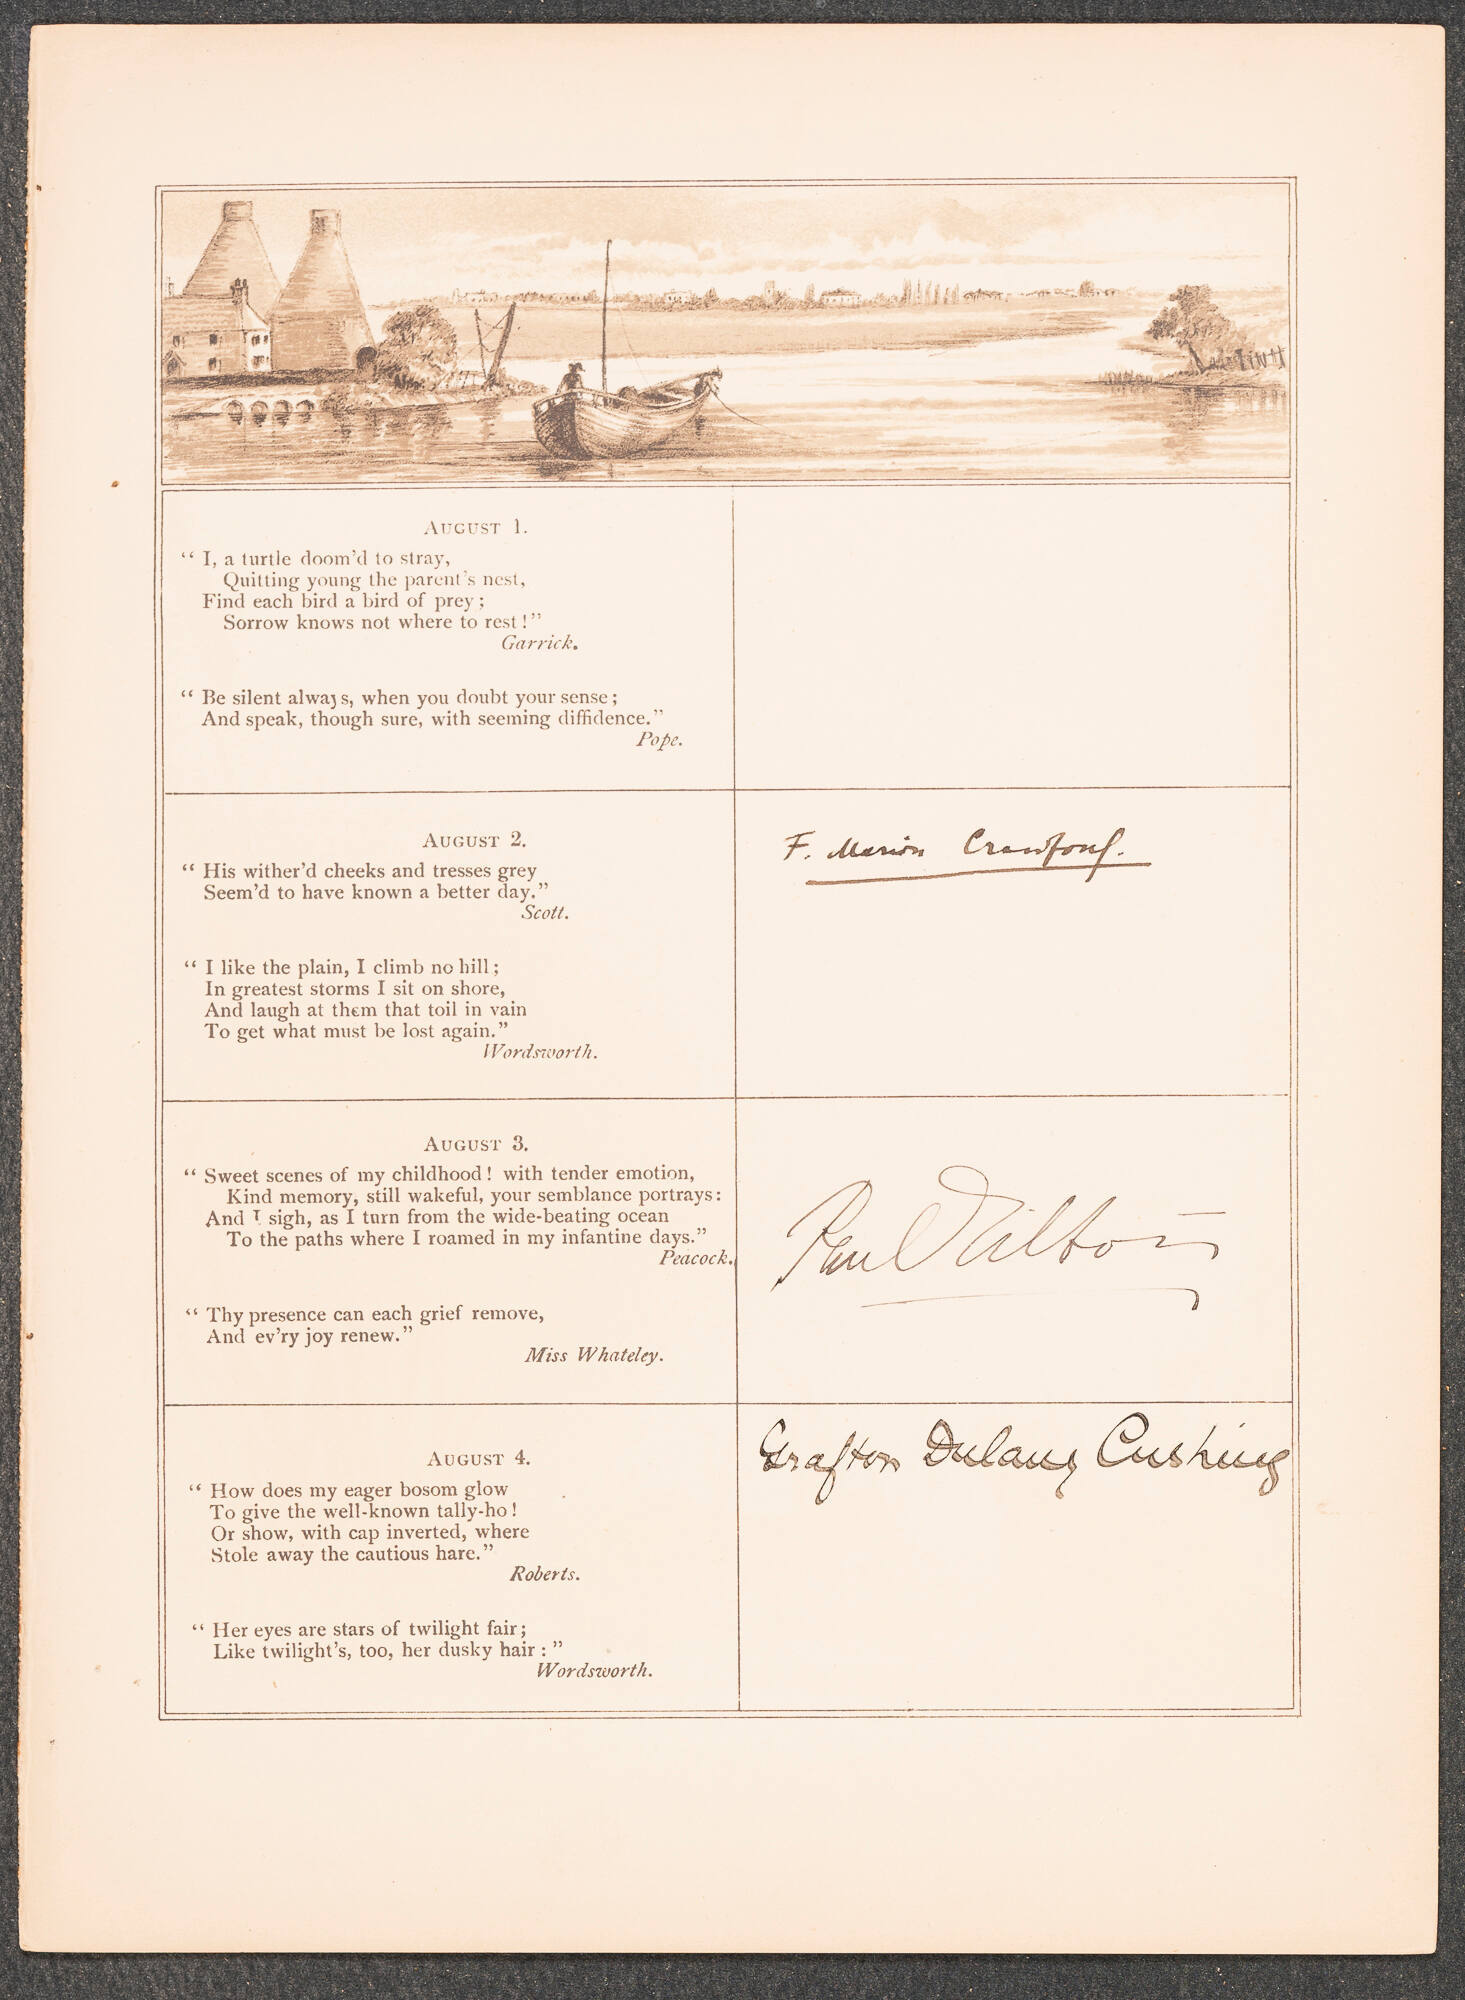 AUGUST 1.
“ I, a turtle doom’d to stray,
Quitting young the parent’s nest,
Find each bird a bird of prey ;
Sorrow knows not where to rest ! ”
Garrick.
“ Be silent always, when you doubt your sense ;
And speak, though sure, with seeming diffidence.”
Pope.
AUGUST 2.
“ His wither’d cheeks and tresses grey
Seem’d to have known a better day.”
Scott.
“ I like the plain, I climb no hill ;
In greatest storms I sit on shore,
And laugh at them that toil in vain
To get what must be lost again.”
Wordsworth.
F. Marion Crawford.
AUGUST 3.
“ Sweet scenes of my childhood ! with tender emotion,
Kind memory, still wakeful, your semblance portrays :
And I sigh, as I turn from the wide-beating ocean
To the paths where I roamed in my infantine days.”
Peacock.
“ Thy presence can each grief remove,
And ev’ry joy renew.”
Miss Whateley.
Paul
AUGUST 4.
“ How does my eager bosom glow
To give the well-known tally-ho !
Or show, with cap inverted, where
Stole away the cautious hare.”
Roberts.
“ Her eyes are stars of twilight fair ;
Like twilight’s, too, her dusky hair : ”
Wordsworth.
Grafton Dulany Cushing